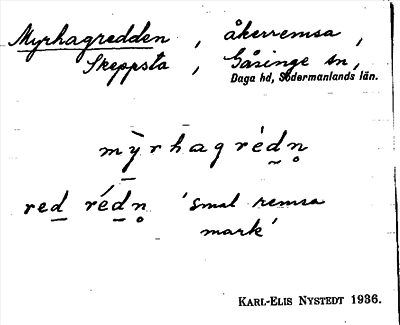 Myrhagredden, åkerremsa,
Skeppsta, Gåsinge sn,
Daga hd, Södermanlands län.
mỳrhagrédn̥
red rédn̥ 'smal remsa
mark'
KARL-ELIS NYSTEDT 1936.